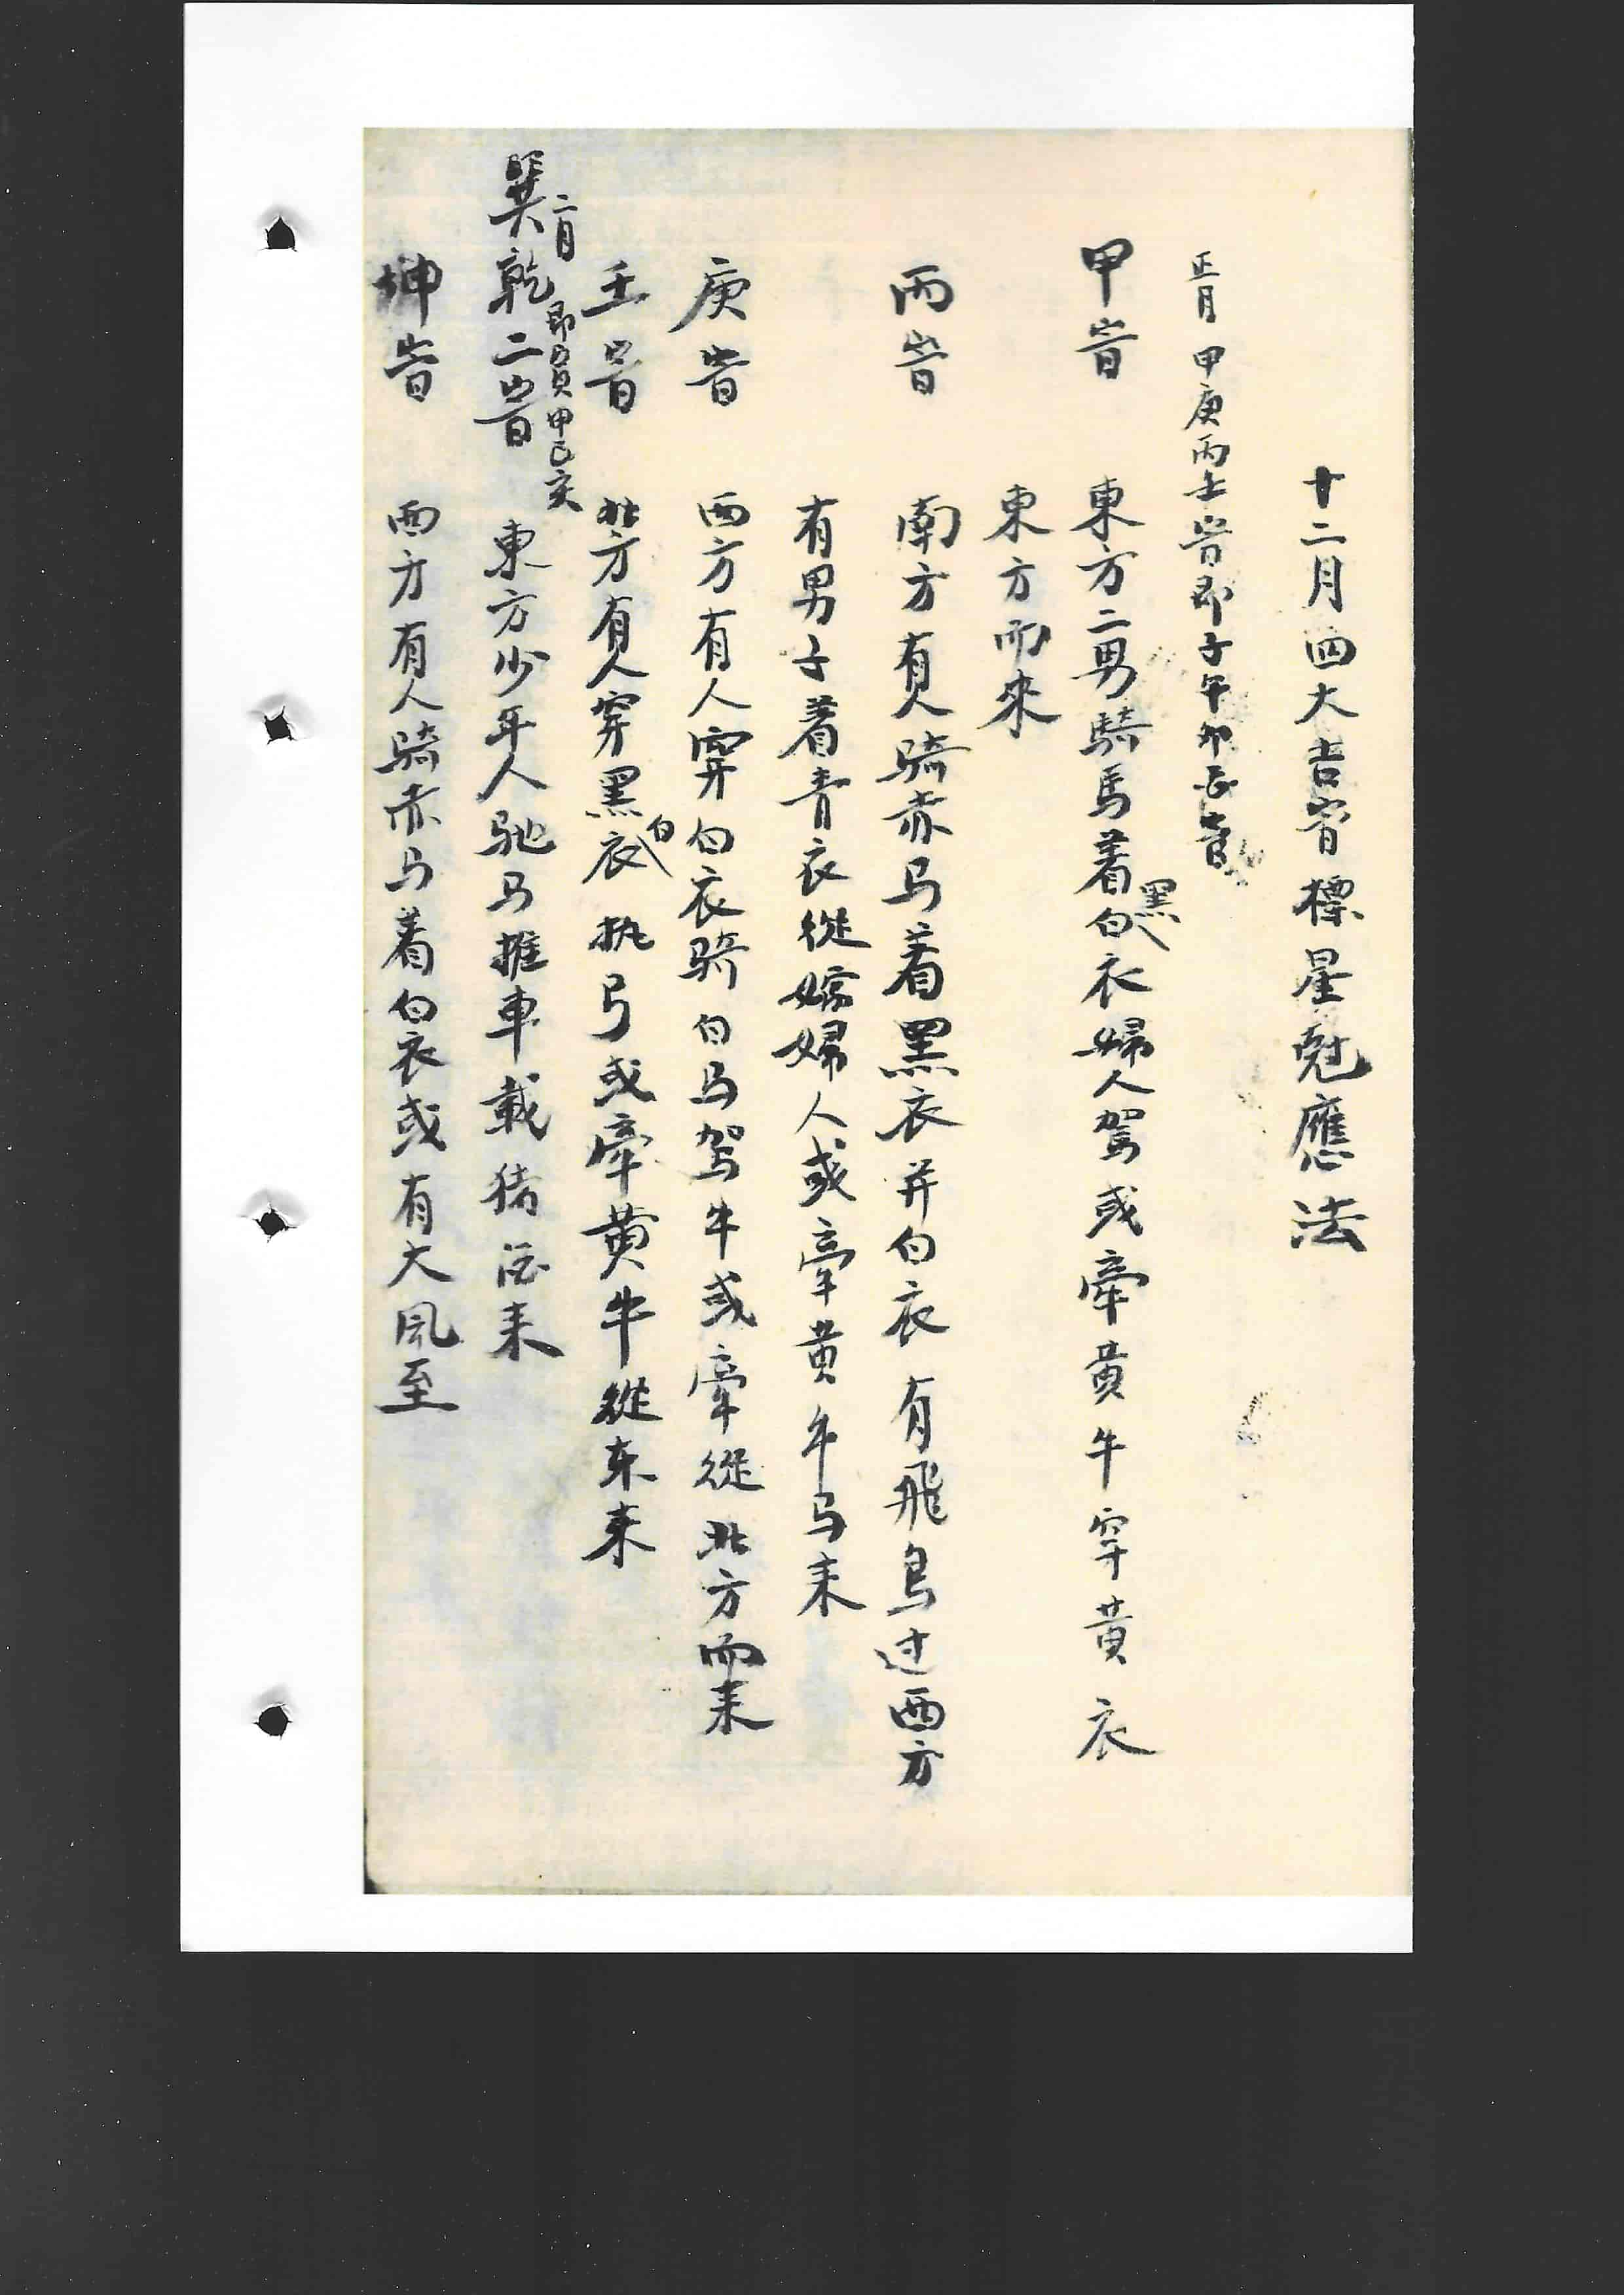 十二月四大吉旹標星尅應法
正月 甲庚丙壬旹即子午卯酉旹
甲旹 東方二男騎馬着白黑衣婦人駕或牽黃牛穿黃衣
東方而來
丙旹 南方有人騎赤马着黑衣并白衣有飛鳥过西方
有男子着青衣從嫁婦人或牽黄牛马来
庚旹 西方有人穿白衣骑白马驾牛或牽從北方而来
壬旹 北方有人穿黑衣白执弓或牽黄牛從东来
二月 即寅申巳亥
巽乾二旹 東方少年人驰马推車載猪酒来
坤旹 西方有人骑赤马着白衣或有大风至